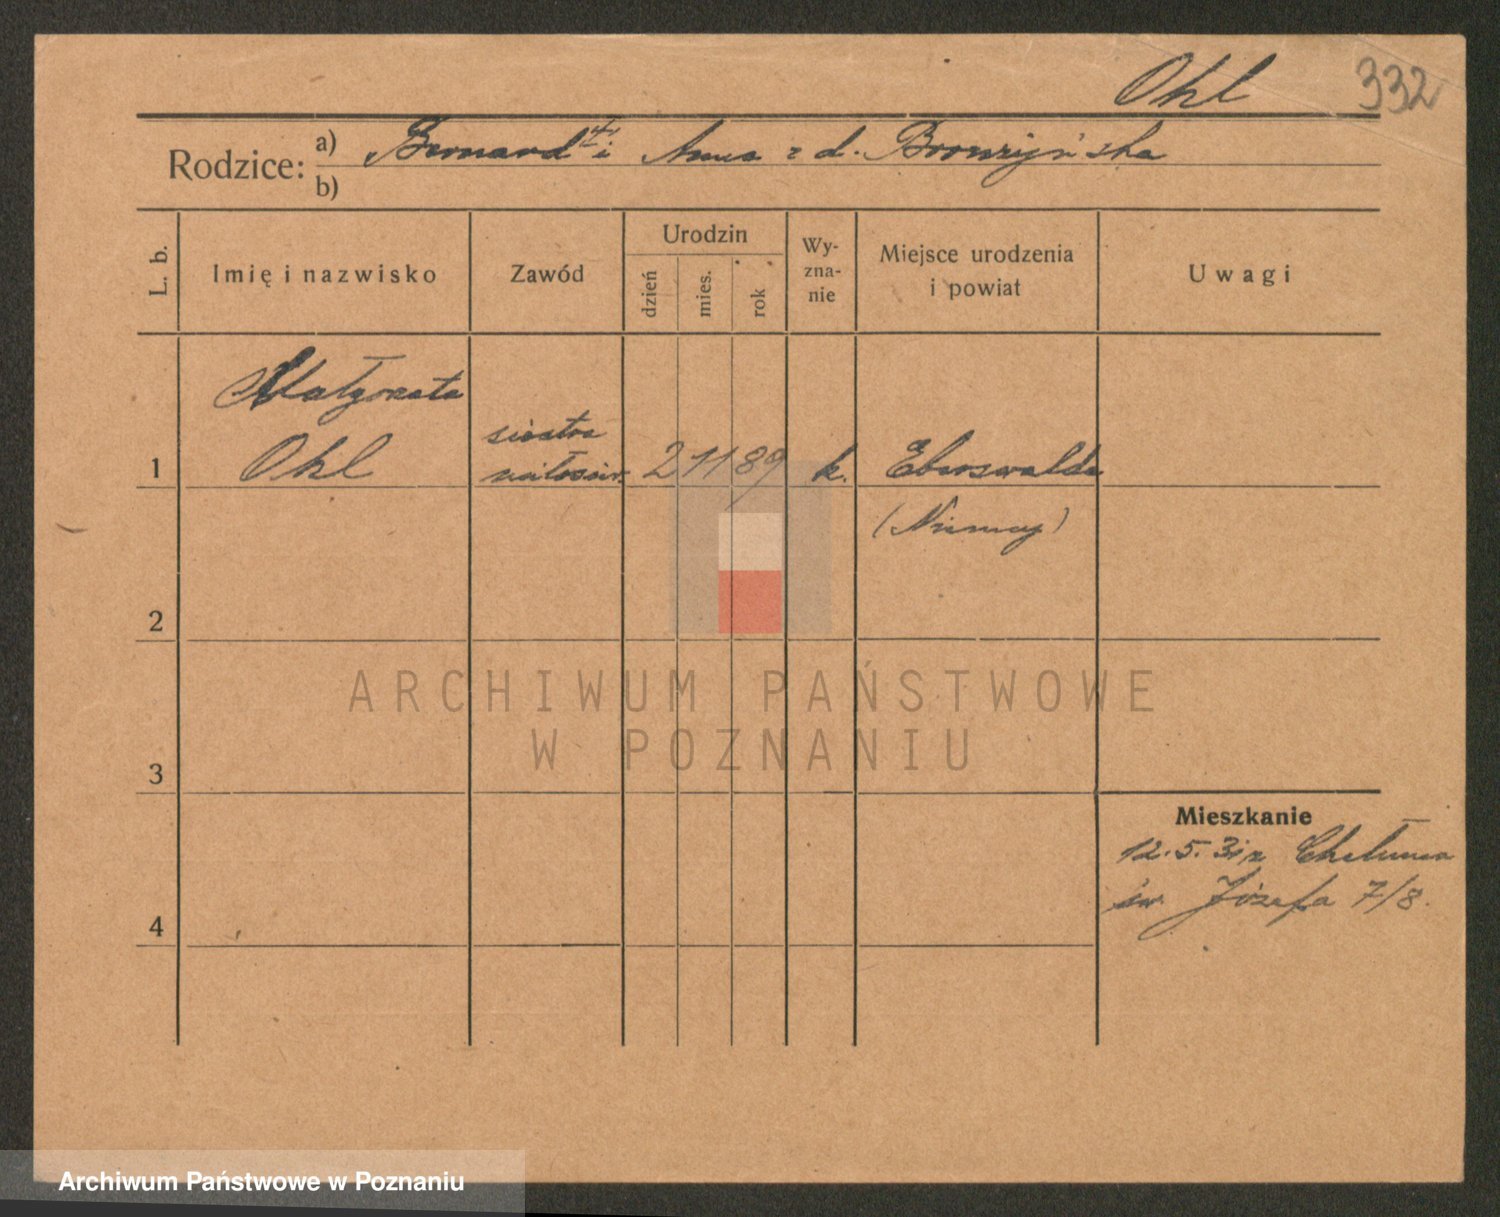 Ohl 332
Rodzice: a) Bernard i Anna z d. Browzyńska
b)
L. b. Imię i nazwisko Zawód Urodzin dzień mies. rok Wy-zna-nie Miejsce urodzenia i powiat Uwagi
Małgorzata
siostra
1 Ohl miłosier. 2 11 89 k. Eberswalde
(Niemcy)
2
ARCHIWUM PAŃSTWOWE
W POZNANIU
3
Mieszkanie
12. 5. 31 z Chełmna
św. Józefa 7/8.
4
Archiwum Państwowe w Poznaniu